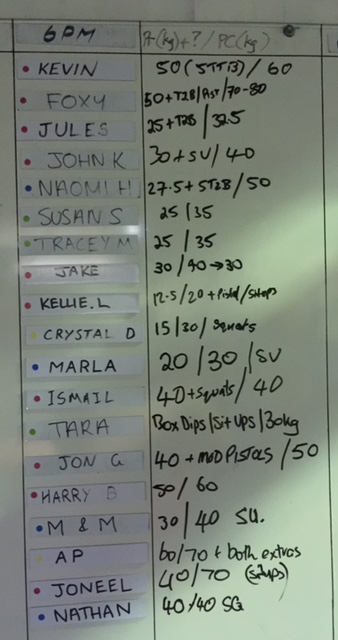 6PM (kg) + ? / PC(kg)
KEVIN 50 (5TTB) / 60
FOXY 50 + T2B / / 70-80
JULES 25 + T2B / 32.5
JOHN K 30 + SU / 40
NAOMI H 27.5 + 5T2B / 50
SUSAN S 25 / 35
TRACEY M 25 / 35
JAKE 30 / 40 → 30
KELLIE.L 12.5 / 20 + Pistol /
CRYSTAL D 15 / 30 / Squats
MARLA 20 / 30 / SU
ISMAIL 40 + Squats / 40
TARA Box Dips / Sit Ups / 30kg
JON G 40 + MOD PISTOLS / 50
HARRY B 50 / 60
M & M 30 / 40 SU.
AP 60/70 + both extras
JONEEL 40/70 (situps)
NATHAN 40/40 SQ